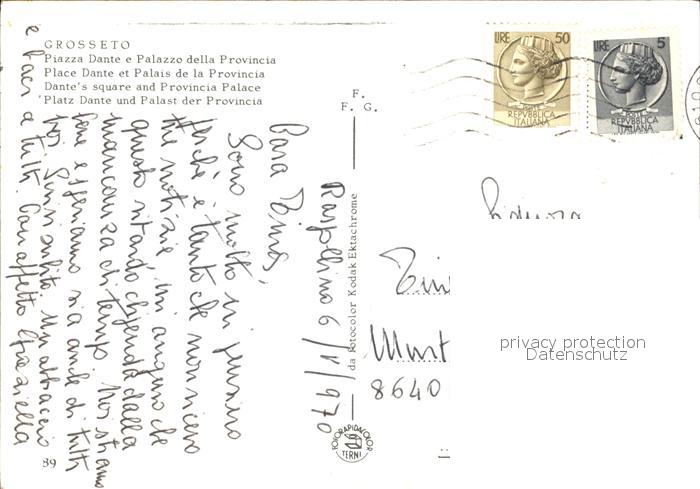 GROSSETO
Piazza Dante e Palazzo della Provincia
Place Dante et Palais de la Provincia
Dante's square and Provincia Palace
Platz Dante und Palast der Provincia
F.
F. G.
LIRE 50
POSTE
REPVBBLICA
ITALIANA
LIRE 5
POSTE
REPVBBLICA
ITALIANA
6/ /970
Cara
Sono molto in pensiero
perché è tanto che non ricevo
tue notizie. Mi auguro che
questo ritardo dipenda dalla
mancanza di tempo. Noi stiamo
bene e speriamo sia anche di tutti
voi. subito. Un abbraccio
e baci a tutti. Con affetto Graziella
da Fotocolor Kodak Ektachrome
FOTORAPIDACOLOR
TERNI
8640
privacy protection
Datenschutz
89